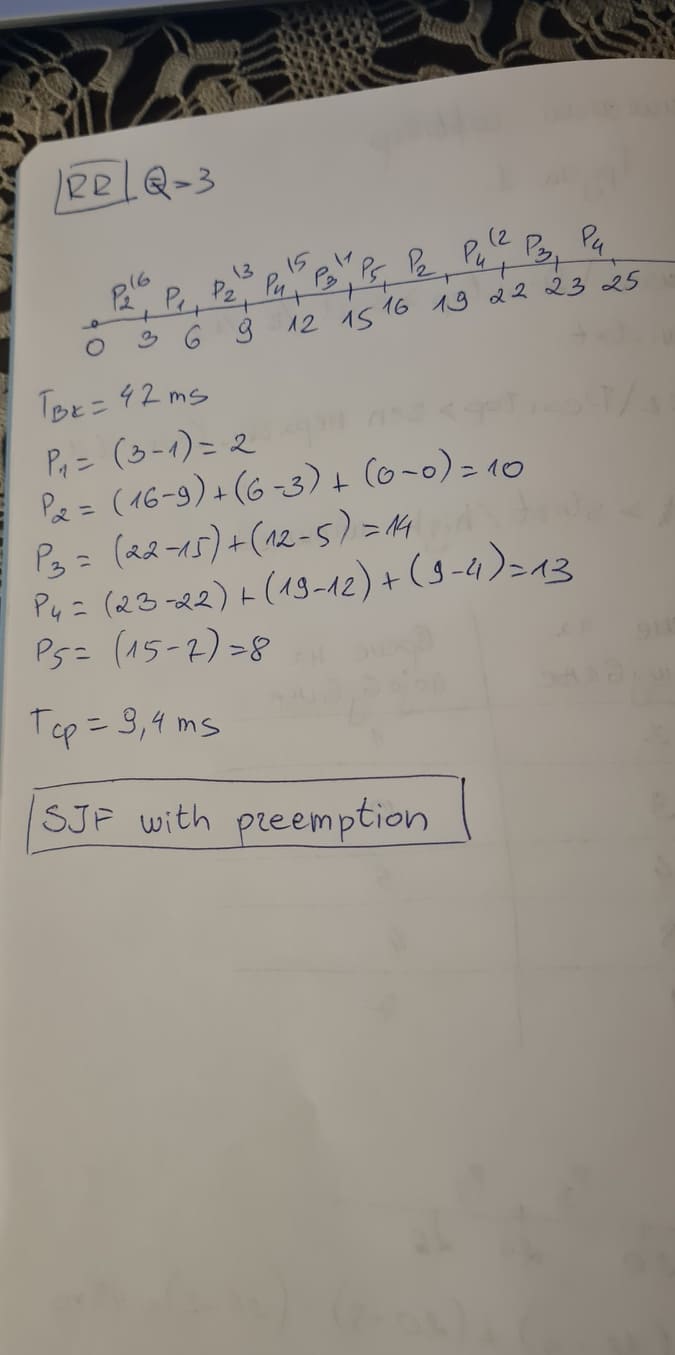 RR Q=3
P2 \6 P1 P2 \3 P4 \5 P3 \1 P5 P2 P4 \2 P3 P4
0 3 6 9 12 15 16 19 22 23 25
Tвк = 42 ms
P1 = (3-1) = 2
P2 = (16-9)+(6-3)+(0-0)=10
P3 = (22-15)+(12-5)=14
P4 = (23-22)+(19-12)+(9-4)=13
P5 = (15-7)=8
Tср = 9,4 ms
SJF with preemption